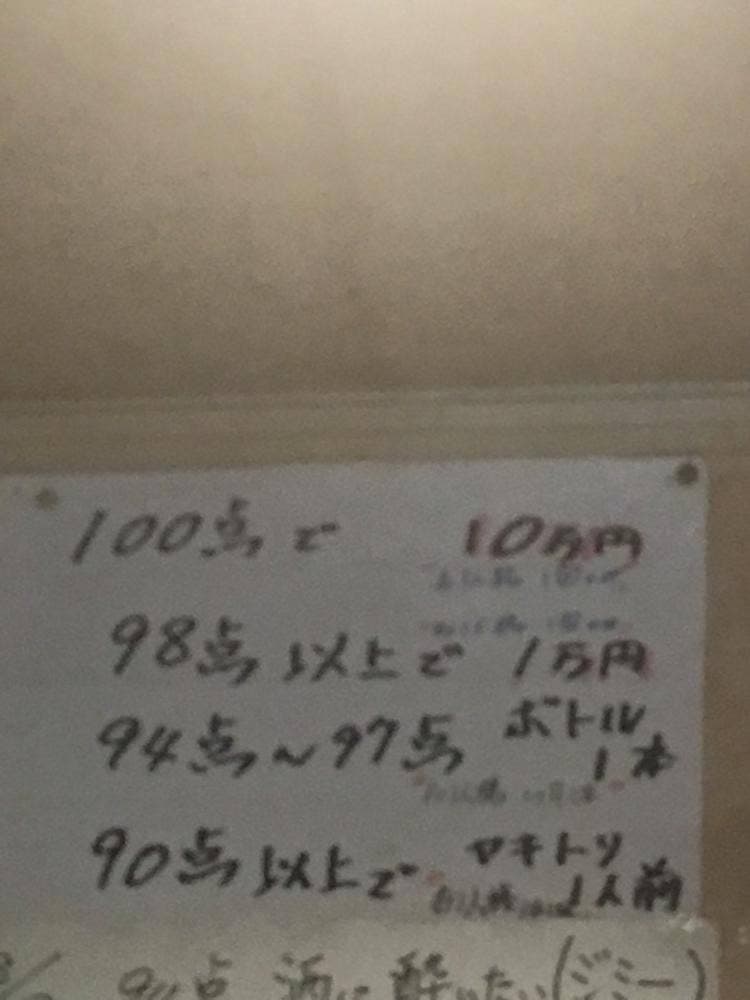 100点で 10万円
98点以上で 1万円
94点〜97点 ボトル
1本
90点以上で ヤキトリ
1人前
点 酒に酔いたい(ジミー)